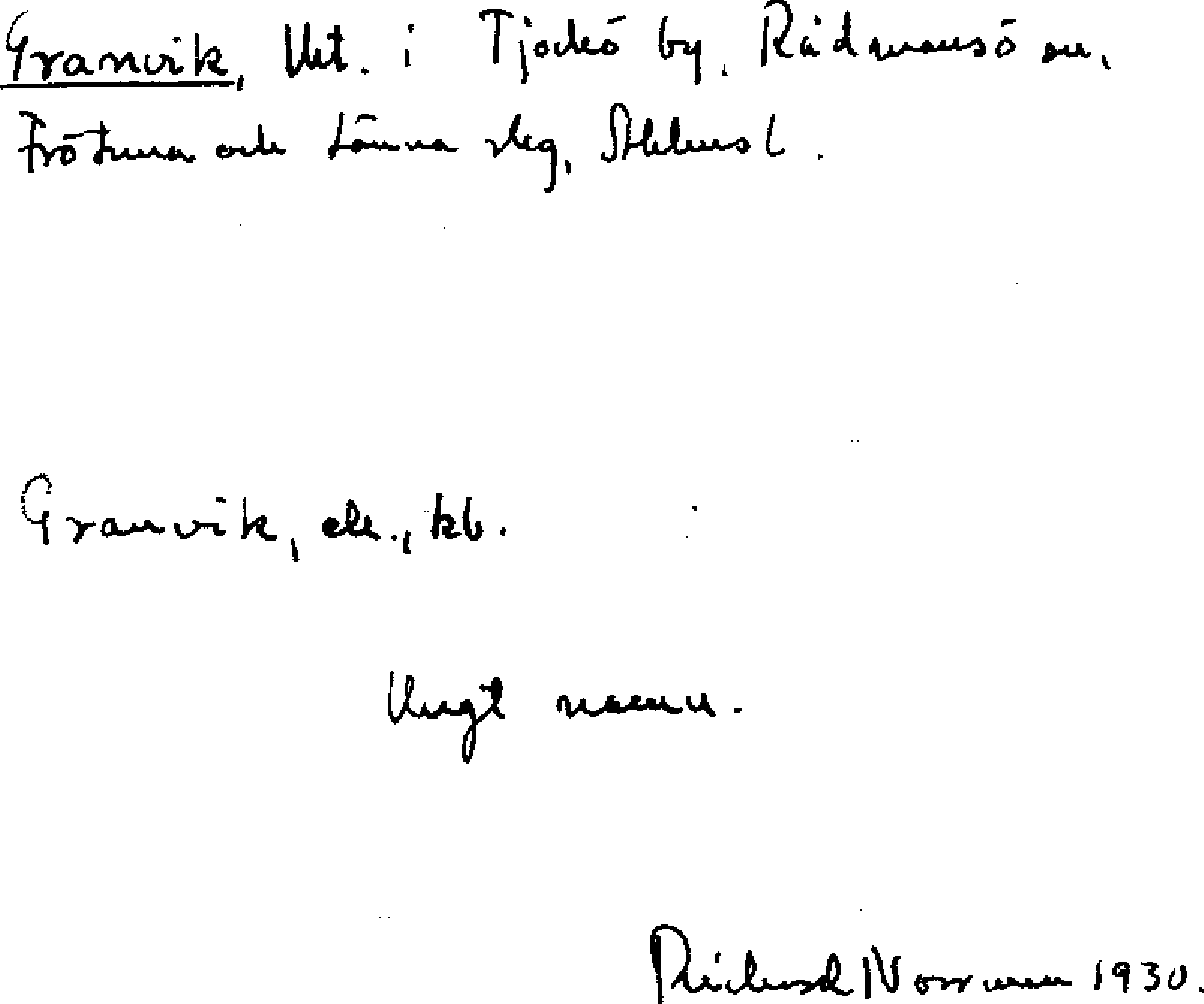 Granvik, lht. i Tjockö by, Rådmansö sn,
Frötuna och Länna skg, Sthlms l.
Granvik, ek., kb.
Ungt namn.
Rickard Norrman 1930.